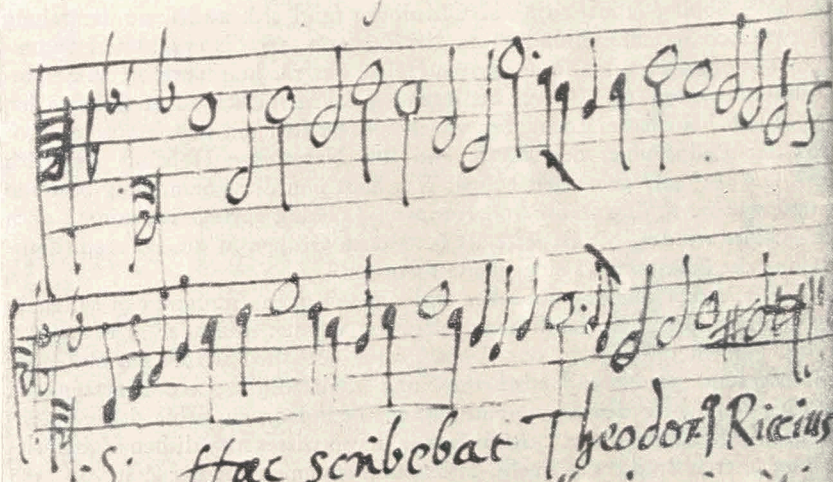 .S. Hac scribebat Theodorꝰ Riccius